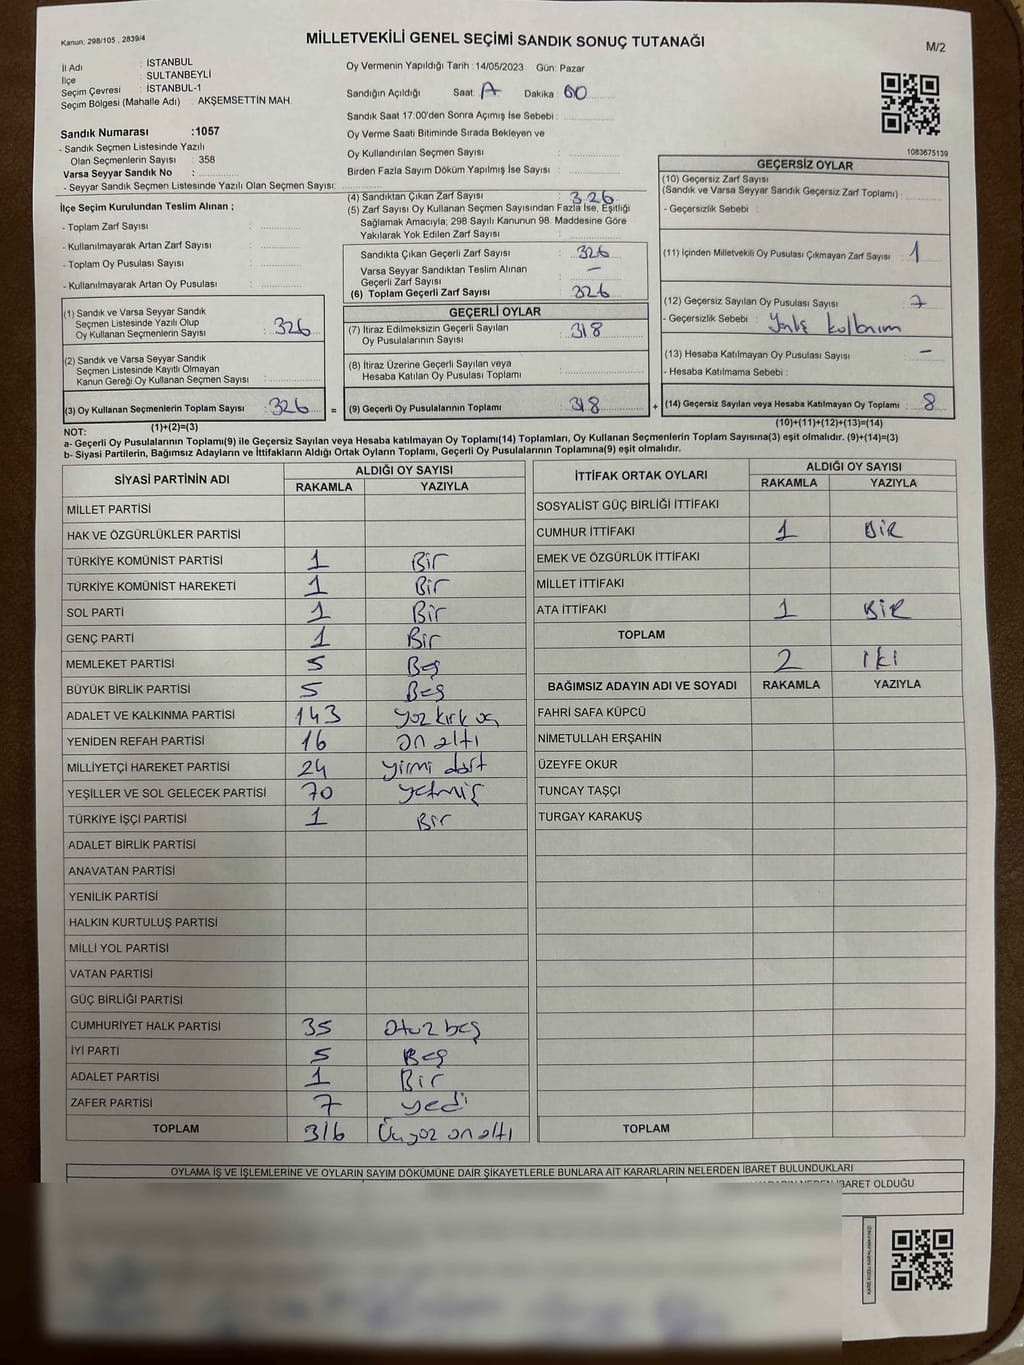 Kanun: 298/105 , 2839/4
MİLLETVEKİLİ GENEL SEÇİMİ SANDIK SONUÇ TUTANAĞI
M/2
İl Adı : İSTANBUL
İlçe : SULTANBEYLİ
Seçim Çevresi : İSTANBUL-1
Seçim Bölgesi (Mahalle Adı) : AKŞEMSETTİN MAH.
Sandık Numarası :1057
- Sandık Seçmen Listesinde Yazılı
Olan Seçmenlerin Sayısı : 358
Varsa Seyyar Sandık No :
- Seyyar Sandık Seçmen Listesinde Yazılı Olan Seçmen Sayısı:
Oy Vermenin Yapıldığı Tarih :14/05/2023 Gün: Pazar
Sandığın Açıldığı Saat: Dakika : 00
Sandık Saat 17:00'den Sonra Açılmış İse Sebebi :
Oy Verme Saati Bitiminde Sırada Bekleyen ve
Oy Kullandırılan Seçmen Sayısı :
Birden Fazla Sayım Döküm Yapılmış İse Sayısı :
1083675139
İlçe Seçim Kurulundan Teslim Alınan ;
- Toplam Zarf Sayısı :
- Kullanılmayarak Artan Zarf Sayısı :
- Toplam Oy Pusulası Sayısı :
- Kullanılmayarak Artan Oy Pusulası :
(1) Sandık ve Varsa Seyyar Sandık
Seçmen Listesinde Yazılı Olup
Oy Kullanan Seçmenlerin Sayısı : 326
(2) Sandık ve Varsa Seyyar Sandık
Seçmen Listesinde Kayıtlı Olmayan
Kanun Gereği Oy Kullanan Seçmen Sayısı :
(3) Oy Kullanan Seçmenlerin Toplam Sayısı : 326 =
(1)+(2)=(3)
(4) Sandıktan Çıkan Zarf Sayısı : 326
(5) Zarf Sayısı Oy Kullanan Seçmen Sayısından Fazla İse, Eşitliği
Sağlamak Amacıyla; 298 Sayılı Kanunun 98. Maddesine Göre
Yakılarak Yok Edilen Zarf Sayısı :
Sandıkta Çıkan Geçerli Zarf Sayısı : 326
Varsa Seyyar Sandıktan Teslim Alınan : -
Geçerli Zarf Sayısı
(6) Toplam Geçerli Zarf Sayısı : 326
GEÇERLİ OYLAR
(7) İtiraz Edilmeksizin Geçerli Sayılan : 318
Oy Pusulalarının Sayısı
(8) İtiraz Üzerine Geçerli Sayılan veya
Hesaba Katılan Oy Pusulası Toplamı :
(9) Geçerli Oy Pusulalarının Toplamı : 318 +
GEÇERSİZ OYLAR
(10) Geçersiz Zarf Sayısı
(Sandık ve Varsa Seyyar Sandık Geçersiz Zarf Toplamı) :
- Geçersizlik Sebebi :
(11) İçinden Milletvekili Oy Pusulası Çıkmayan Zarf Sayısı : 1
(12) Geçersiz Sayılan Oy Pusulası Sayısı : 7
- Geçersizlik Sebebi :
(13) Hesaba Katılmayan Oy Pusulası Sayısı : -
- Hesaba Katılmama Sebebi :
(14) Geçersiz Sayılan veya Hesaba Katılmayan Oy Toplamı : 8
(10)+(11)+(12)+(13)=(14)
NOT:
a- Geçerli Oy Pusulalarının Toplamı(9) ile Geçersiz Sayılan veya Hesaba katılmayan Oy Toplamı(14) Toplamları, Oy Kullanan Seçmenlerin Toplam Sayısına(3) eşit olmalıdır. (9)+(14)=(3)
b- Siyasi Partilerin, Bağımsız Adayların ve İttifakların Aldığı Ortak Oyların Toplamı, Geçerli Oy Pusulalarının Toplamına(9) eşit olmalıdır.
SİYASİ PARTİNİN ADI ALDIĞI OY SAYISI
RAKAMLA YAZIYLA
MİLLET PARTİSİ
HAK VE ÖZGÜRLÜKLER PARTİSİ
TÜRKİYE KOMÜNİST PARTİSİ 1 Bir
TÜRKİYE KOMÜNİST HAREKETİ 1 Bir
SOL PARTİ 1 Bir
GENÇ PARTİ 1 Bir
MEMLEKET PARTİSİ 5 Beş
BÜYÜK BİRLİK PARTİSİ 5 Beş
ADALET VE KALKINMA PARTİSİ 143 yüz kırk üç
YENİDEN REFAH PARTİSİ 16 on altı
MİLLİYETÇİ HAREKET PARTİSİ 24 yirmi dört
YEŞİLLER VE SOL GELECEK PARTİSİ 70 yetmiş
TÜRKİYE İŞÇİ PARTİSİ 1 Bir
ADALET BİRLİK PARTİSİ
ANAVATAN PARTİSİ
YENİLİK PARTİSİ
HALKIN KURTULUŞ PARTİSİ
MİLLİ YOL PARTİSİ
VATAN PARTİSİ
GÜÇ BİRLİĞİ PARTİSİ
CUMHURİYET HALK PARTİSİ 35 otuz beş
İYİ PARTİ 5 Beş
ADALET PARTİSİ 1 Bir
ZAFER PARTİSİ 7 yedi
TOPLAM 316 Üçyüz on altı
İTTİFAK ORTAK OYLARI ALDIĞI OY SAYISI
RAKAMLA YAZIYLA
SOSYALİST GÜÇ BİRLİĞİ İTTİFAKI
CUMHUR İTTİFAKI 1 BİR
EMEK VE ÖZGÜRLÜK İTTİFAKI
MİLLET İTTİFAKI
ATA İTTİFAKI 1 BİR
TOPLAM
2 iki
BAĞIMSIZ ADAYIN ADI VE SOYADI RAKAMLA YAZIYLA
FAHRİ SAFA KÜPCÜ
NİMETULLAH ERŞAHİN
ÜZEYFE OKUR
TUNCAY TAŞÇI
TURGAY KARAKUŞ
TOPLAM
OYLAMA İŞ VE İŞLEMLERİNE VE OYLARIN SAYIM DÖKÜMÜNE DAİR ŞİKAYETLERLE BUNLARA AİT KARARLARIN NELERDEN İBARET BULUNDUKLARI
İBARET OLDUĞU